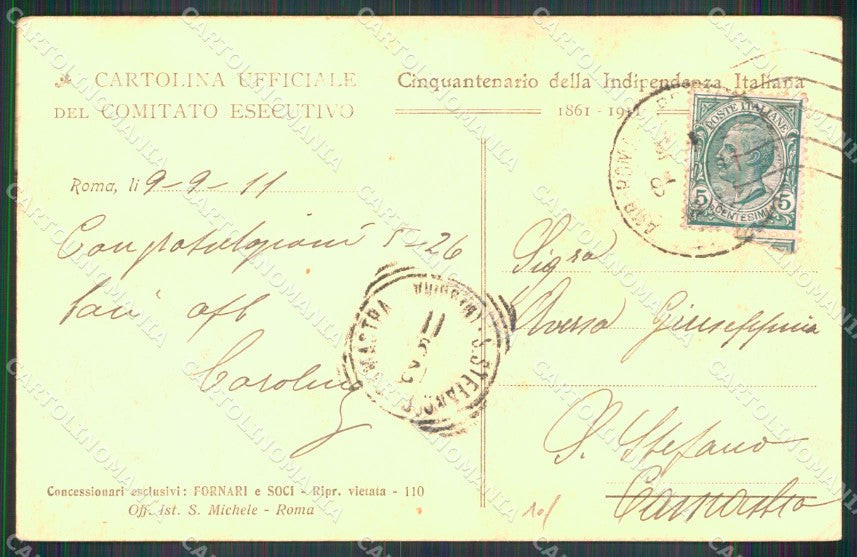 CARTOLINA UFFICIALE
DEL COMITATO ESECUTIVO
Cinquantenario della Indipendenza Italiana
1861 - 1911
POSTE ITALIANE
5 5
CENTESIMI
Roma, li 9-9-11
Congratulazioni 5-26
baci aff
Carolina
Sigra
Aversa Giuseppina
S. Stefano
Camastra
S. STEFANO
CAMASTRA
11
Concessionari esclusivi: FORNARI e SOCI - Ripr. vietata - 110
Off. Ist. S. Michele - Roma
CARTOLINOMANIA